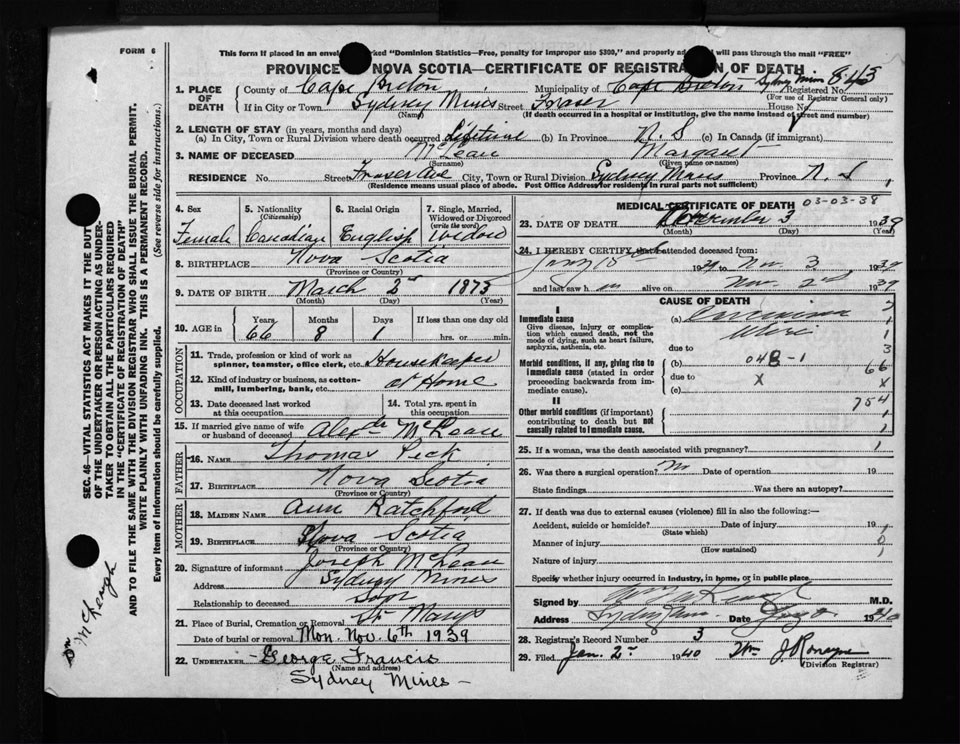 FORM 6
This form if placed in an envelope marked "Dominion Statistics—Free, penalty for improper use $300," and properly ad will pass through the mail "FREE"
PROVINCE NOVA SCOTIA—CERTIFICATE OF REGISTRATION OF DEATH
1. PLACE OF DEATH County of Cape Breton Municipality of Cape Breton Sydney Mines Registered No. 843
(For use of Registrar General only)
If in City or Town Sydney Mines Street Fraser House No.
(Name) (If death occurred in a hospital or institution, give the name instead of street and number)
2. LENGTH OF STAY (in years, months and days)
(a) In City, Town or Rural Division where death occurred Lifetime (b) In Province N.S (c) In Canada (if immigrant)
3. NAME OF DECEASED McLean Margaret
(Surname) (Given name or names)
RESIDENCE No Street Fraser Ave City, Town or Rural Division Sydney Mines Province N.S.
(Residence means usual place of abode. Post Office Address for residents in rural parts not sufficient)
4. Sex Female
5. Nationality (Citizenship) Canadian
6. Racial Origin English
7. Single, Married, Widowed or Divorced (write the word) Widow
8. BIRTHPLACE Nova Scotia
(Province or Country)
9. DATE OF BIRTH March 2nd 1873
(Month) (Day) (Year)
10. AGE in Years 66 Months 8 Days 1 If less than one day old
hrs. or min.
OCCUPATION
11. Trade, profession or kind of work as spinner, teamster, office clerk, etc. Housekeeper
12. Kind of industry or business, as cotton-mill, lumbering, bank, etc. at Home
13. Date deceased last worked at this occupation
14. Total yrs. spent in this occupation
15. If married give name of wife or husband of deceased Alexdr McLean
FATHER
16. NAME Thomas Peck
17. BIRTHPLACE Nova Scotia
(Province or Country)
MOTHER
18. MAIDEN NAME Ann Ratchford
19. BIRTHPLACE Nova Scotia
(Province or Country)
20. Signature of informant Joseph McLean
Address Sydney Mines
Relationship to deceased Son
21. Place of Burial, Cremation or Removal St Marys
Date of burial or removal Mon. Nov. 6th 1939
22. UNDERTAKER George Francis
(Name and address)
Sydney Mines
MEDICAL CERTIFICATE OF DEATH 03-03-38
23. DATE OF DEATH November 3 1939
(Month) (Day) (Year)
24. I HEREBY CERTIFY that I attended deceased from:
19 to Nov 3 1939
and last saw h alive on Nov. 2nd 1939
CAUSE OF DEATH
I
Immediate cause
Give disease, injury or complication which caused death, not the mode of dying, such as heart failure, asphyxia, asthenia, etc.
(a) Carcinoma
due to
Morbid conditions, if any, giving rise to immediate cause (stated in order proceeding backwards from immediate cause).
(b) 048-1
due to x
(c)
II
Other morbid conditions (if important) contributing to death but not causally related to immediate cause.
754
25. If a woman, was the death associated with pregnancy?
26. Was there a surgical operation? No Date of operation 19
State findings Was there an autopsy?
27. If death was due to external causes (violence) fill in also the following:—
Accident, suicide or homicide? Date of injury 19
(State which)
Manner of injury
(How sustained)
Nature of injury
Specify whether injury occurred in industry, in home, or in public place.
Signed by M.D.
Address Sydney Mines Date 1940
28. Registrar's Record Number 3
29. Filed Jan. 2nd 1940 Wm J Ronayne
(Division Registrar)
SEC. 46—VITAL STATISTICS ACT MAKES IT THE DUTY
OF THE UNDERTAKER OR PERSON ACTING AS UNDER-
TAKER TO OBTAIN ALL THE PARTICULARS REQUIRED
IN THE "CERTIFICATE OF REGISTRATION OF DEATH"
AND TO FILE THE SAME WITH THE DIVISION REGISTRAR WHO SHALL ISSUE THE BURIAL PERMIT.
WRITE PLAINLY WITH UNFADING INK. THIS IS A PERMANENT RECORD.
Every item of information should be carefully supplied. (See reverse side for instructions.)
Dr McKeough